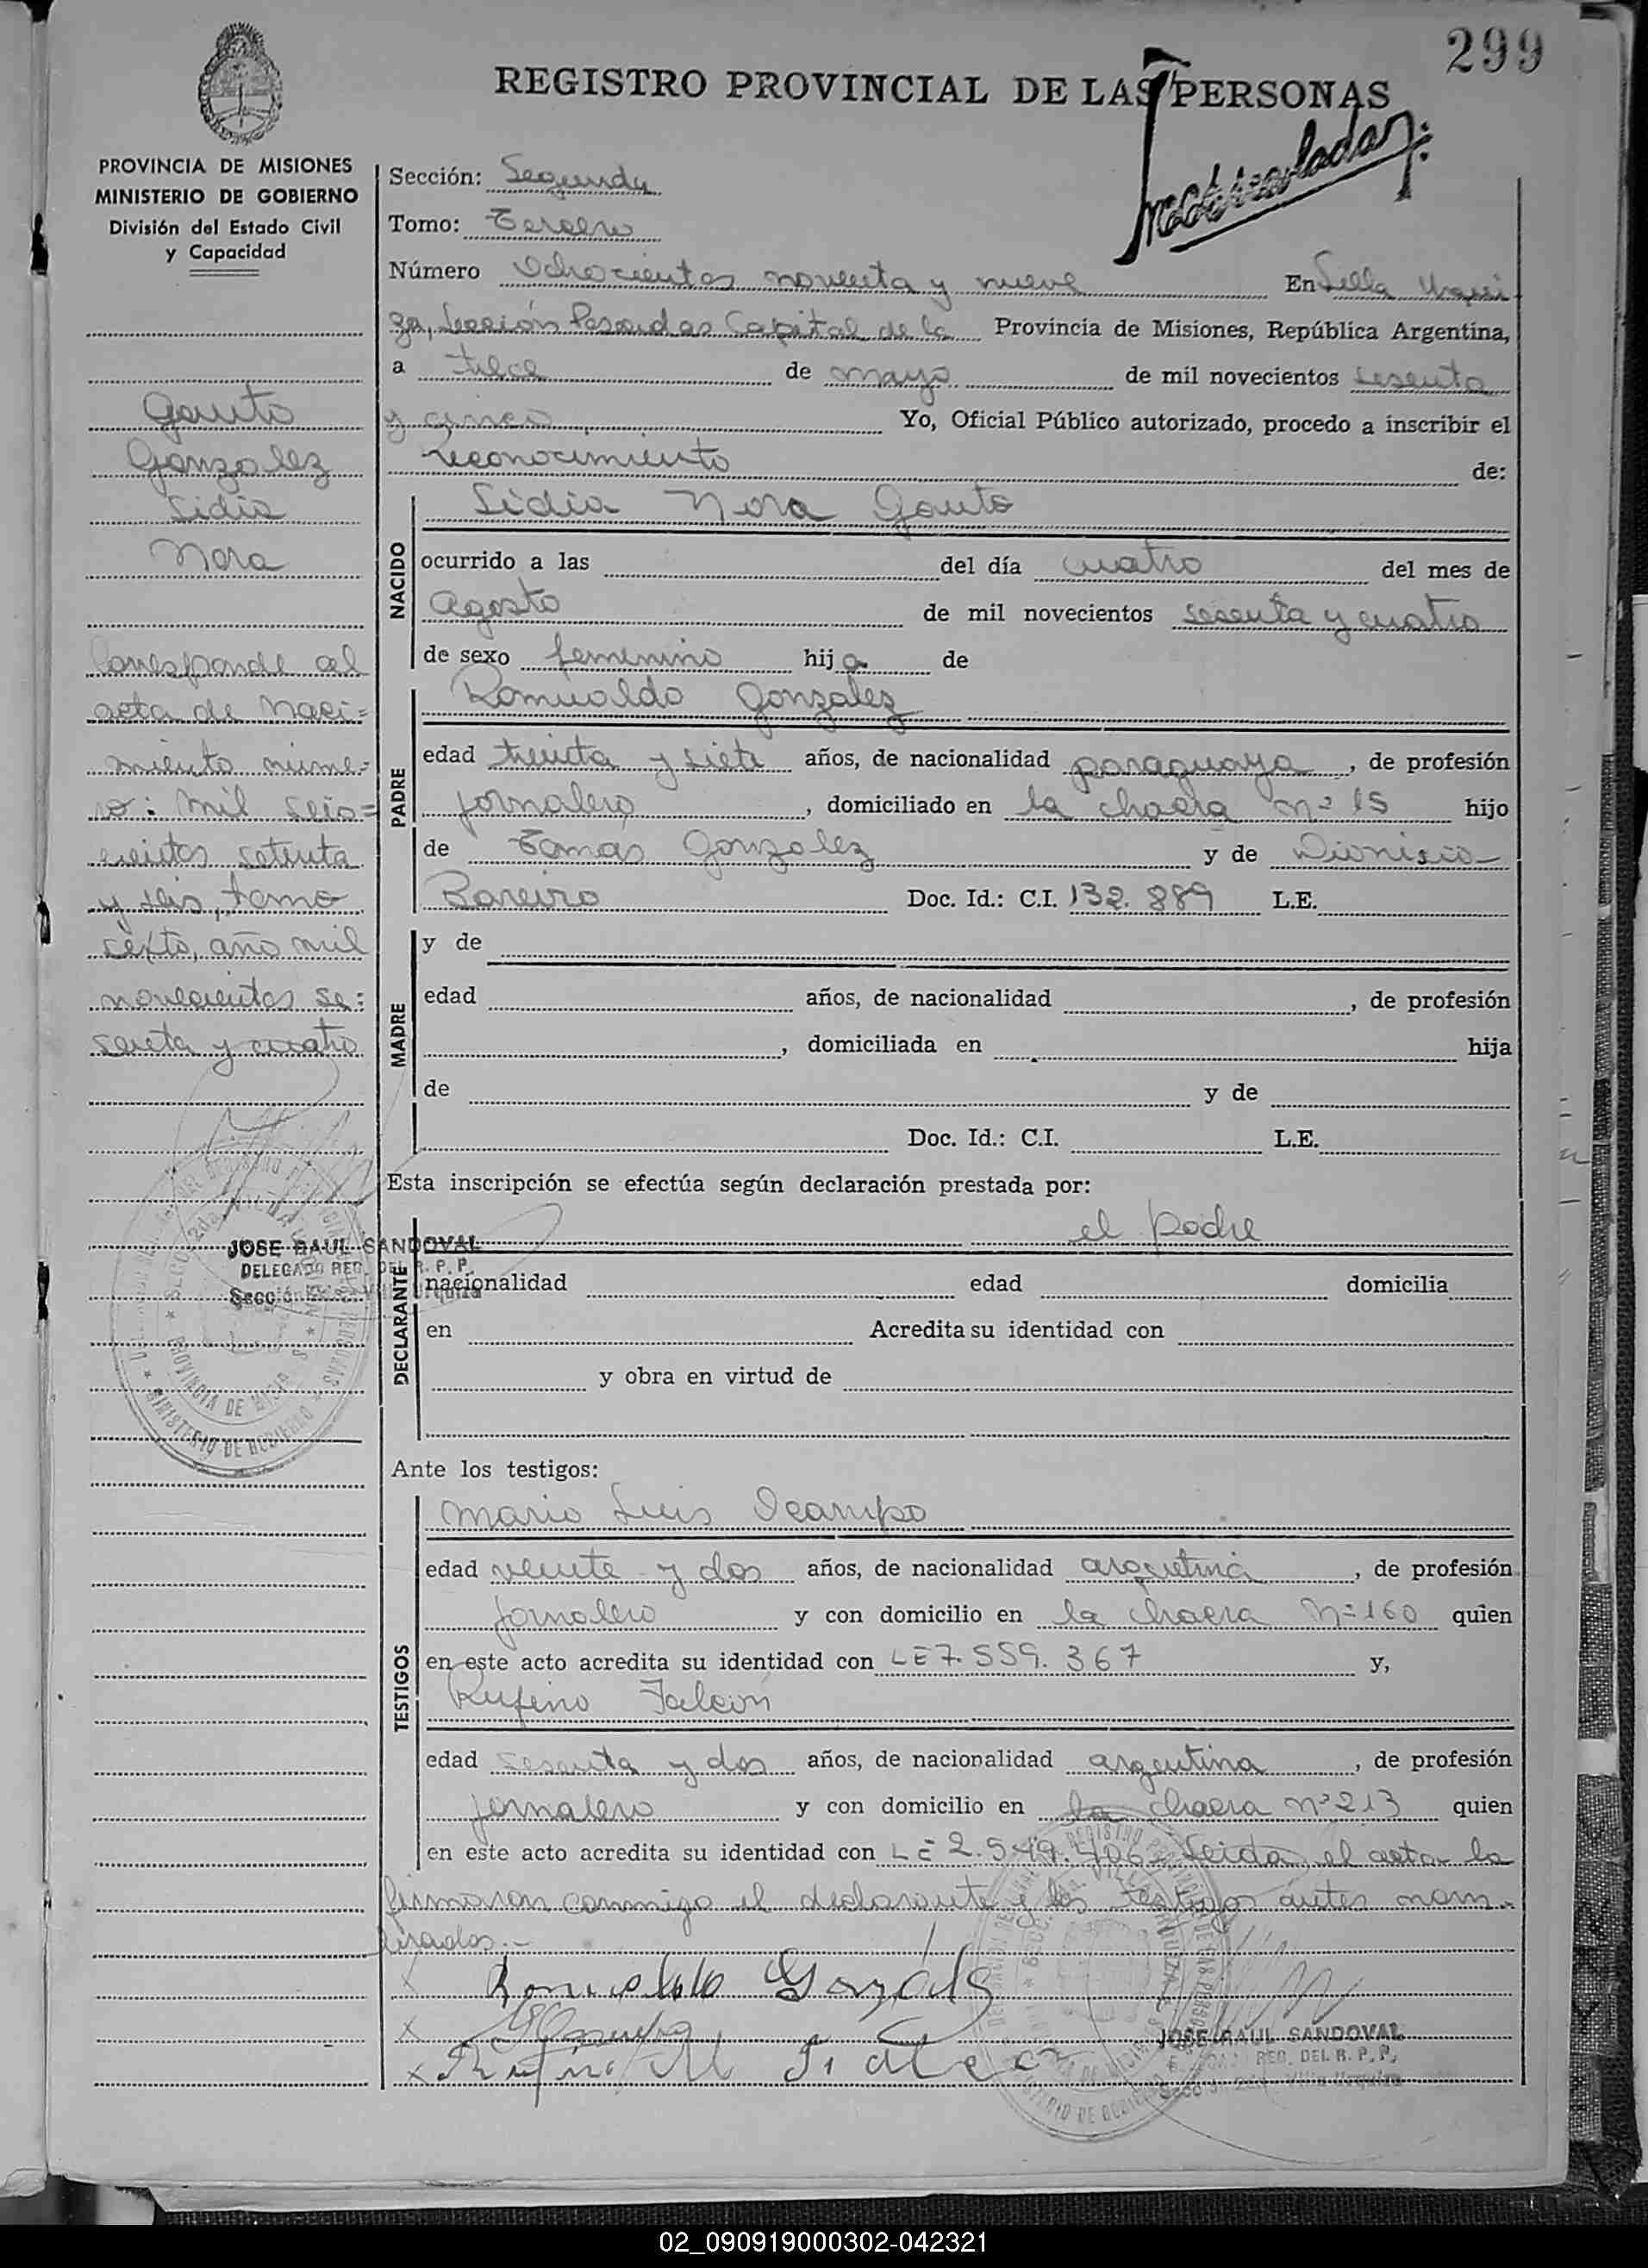 299
REGISTRO PROVINCIAL DE LAS PERSONAS
PROVINCIA DE MISIONES
MINISTERIO DE GOBIERNO
División del Estado Civil
y Capacidad
Gauto
Gonzalez
Lidia
Nora
Corresponde al
acta de Naci=
miento núme-
ro: mil seis=
cientos setenta
y seis, tomo
sexto, año mil
novecientos se:
senta y cuatro
JOSE RAUL SANDOVAL
DELEGADO REG. DEL R. P. P.
Sección Villa Urquiza
Sección: Segunda
Tomo: Tercero
Número Ochocientos noventa y nueve En Villa Urqui-
za, Sección Posadas Capital de la Provincia de Misiones, República Argentina,
a trece de mayo de mil novecientos sesenta
y cinco Yo, Oficial Público autorizado, procedo a inscribir el
reconocimiento de:
NACIDO
Lidia Nora Gauto
ocurrido a las del día cuatro del mes de
Agosto de mil novecientos sesenta y cuatro
de sexo femenino hija de
PADRE
Romualdo Gonzalez
edad treinta y siete años, de nacionalidad paraguaya, de profesión
jornalero, domiciliado en la chacra nº 15 hijo
de Tomas Gonzalez y de Dionisia
Bareiro Doc. Id.: C.I. 132.889 L.E.
MADRE
y de
edad años, de nacionalidad , de profesión
, domiciliada en hija
de y de
Doc. Id.: C.I. L.E.
Esta inscripción se efectúa según declaración prestada por:
DECLARANTE
el padre
nacionalidad edad domicilia
en Acredita su identidad con
y obra en virtud de
Ante los testigos:
TESTIGOS
Mario Luis Ocampo
edad veinte y dos años, de nacionalidad argentina, de profesión
jornalero y con domicilio en la chacra Nº 160 quien
en este acto acredita su identidad con LE 7.559.367 y,
Rufino Falcón
edad sesenta y dos años, de nacionalidad argentina, de profesión
jornalero y con domicilio en la chacra nº 213 quien
en este acto acredita su identidad con LE 2.549.406 Leida el acta la
firmaron conmigo el declarante y los testigos antes nom-
brados.-
Romualdo Gonzalez
JOSE RAUL SANDOVAL
REG. DEL R. P. P.
02_090919000302-042321